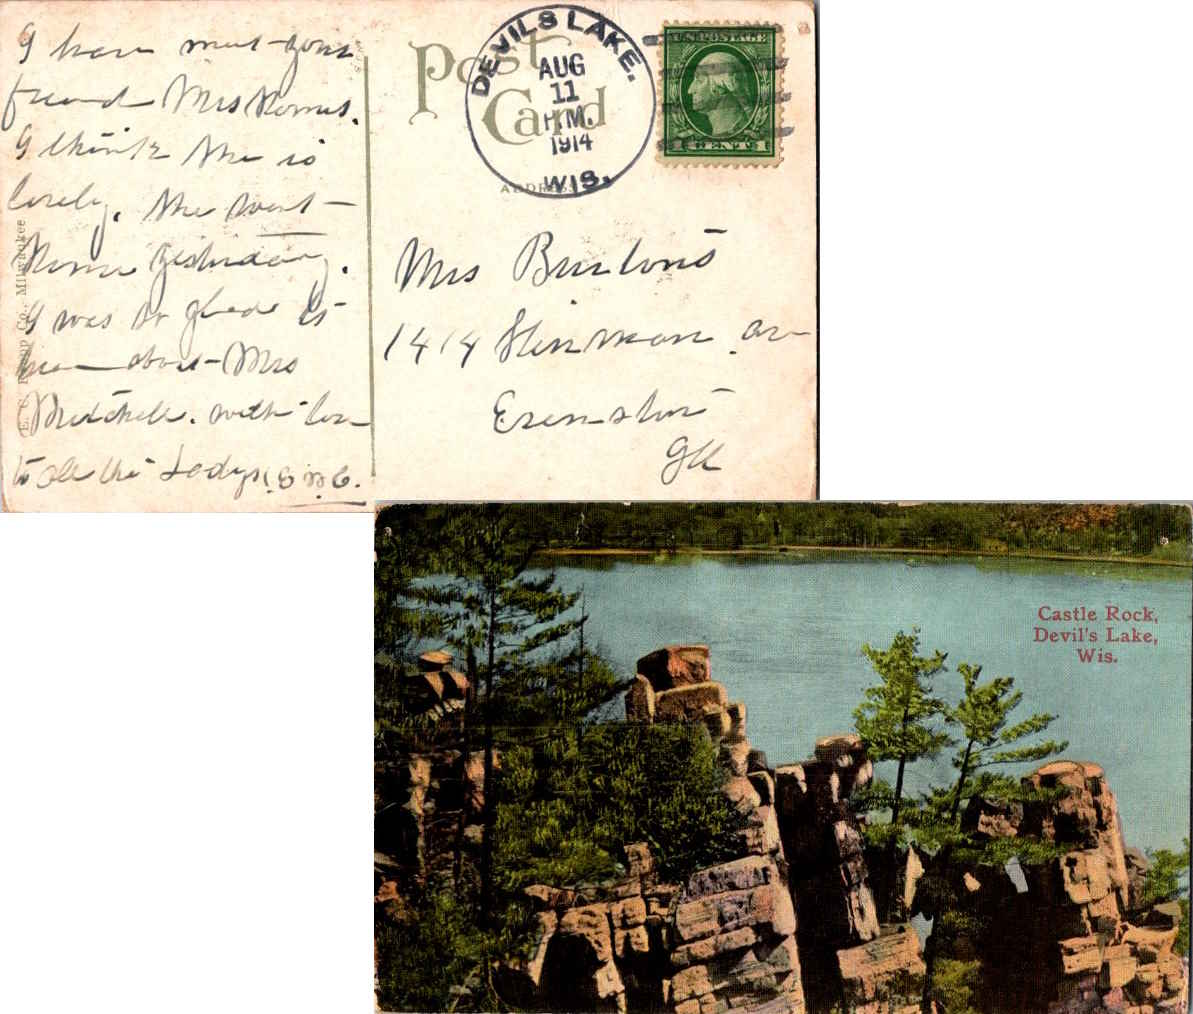 I have met your
friend Mrs
I think she is
lovely. She went
home yesterday.
I was so glad to
hear about Mrs
Mitchell. with love
to all the Ladys
E. C. Kropp Co., Milwaukee
Post
Card
ADDRESS
DEVILS LAKE.
AUG
11
M.
1914
WIS.
U.S. POSTAGE
1 CENT 1
Mrs
1414 Hinman av
Evanston
Ill
Castle Rock,
Devil's Lake,
Wis.